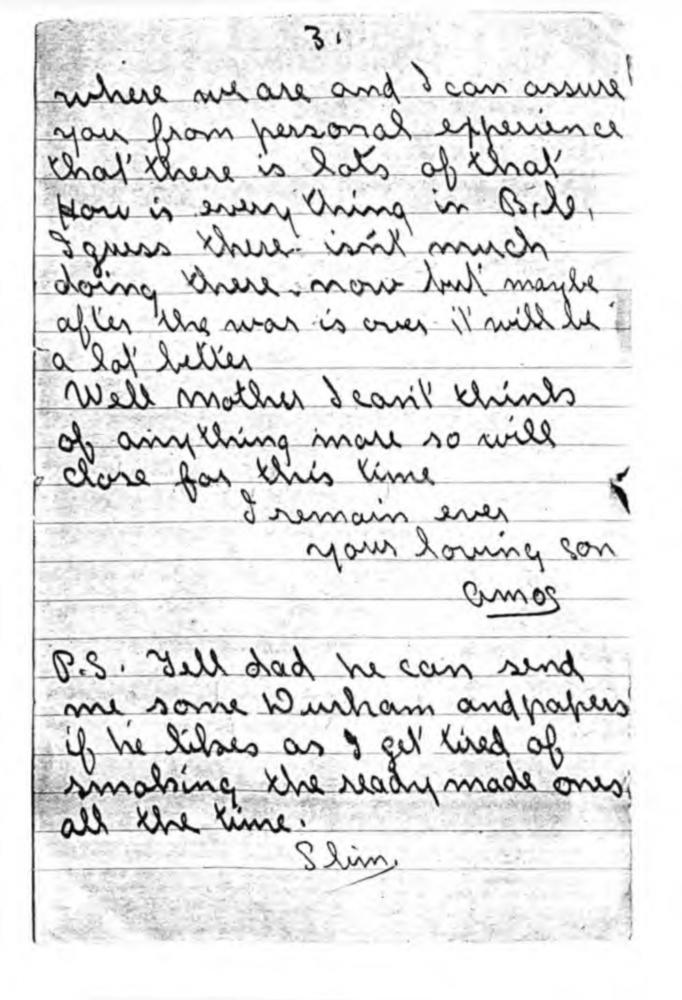 3.
where we are and I can assure
you from personal experience
that there is lots of that
How is every thing in B.C.,
I guess there isn't much
doing there now but maybe
after the war is over it will be
a lot better
Well mother I can't think
of any thing more so will
close for this time
I remain ever
your loving son
Amos
P.S. Tell dad he can send
me some Durham and papers
if he likes as I get tired of
smoking the ready made ones
all the time.
Slim.